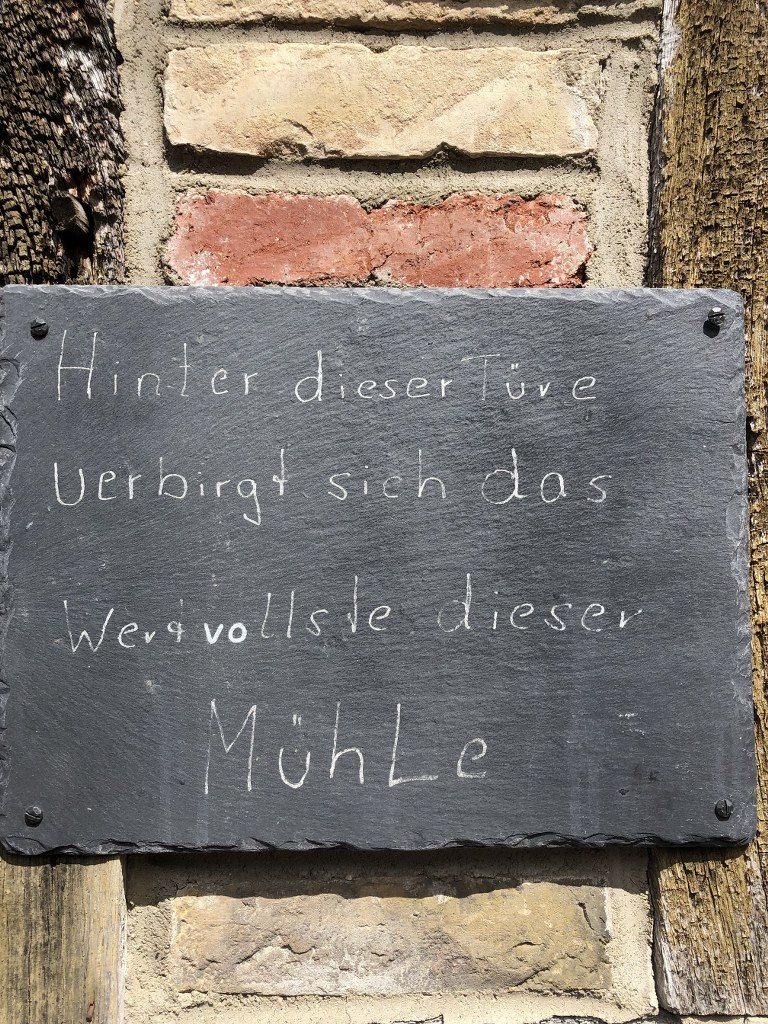 Hinter dieser Türe
verbirgt sich das
Wertvollste dieser
Mühle